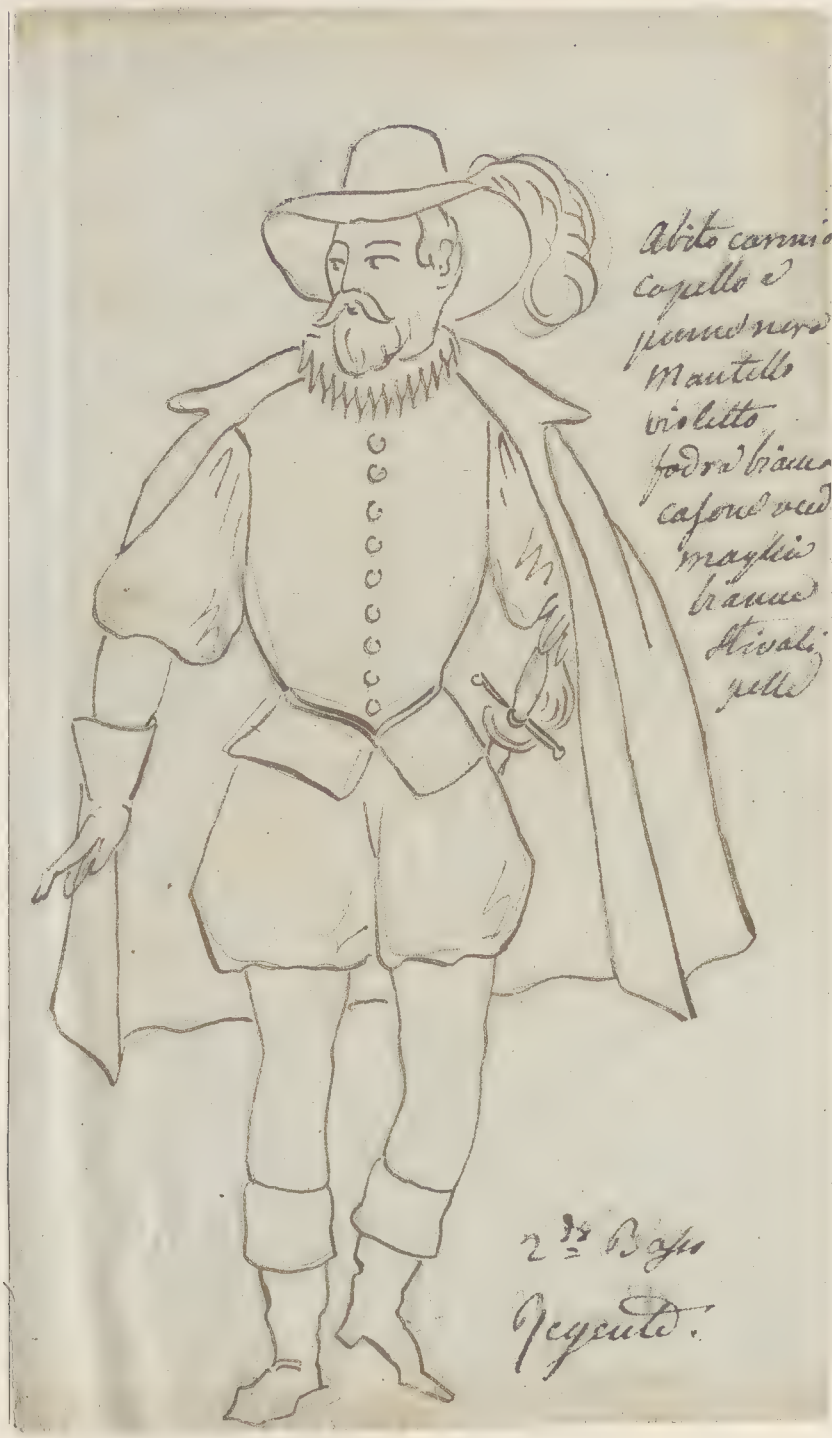 Abito carmi
capello e
piume nere
Mantello
violetto
fodra bianca
calsone
maglie
bianue
Stivali
pelle
2do Basso
Regente.